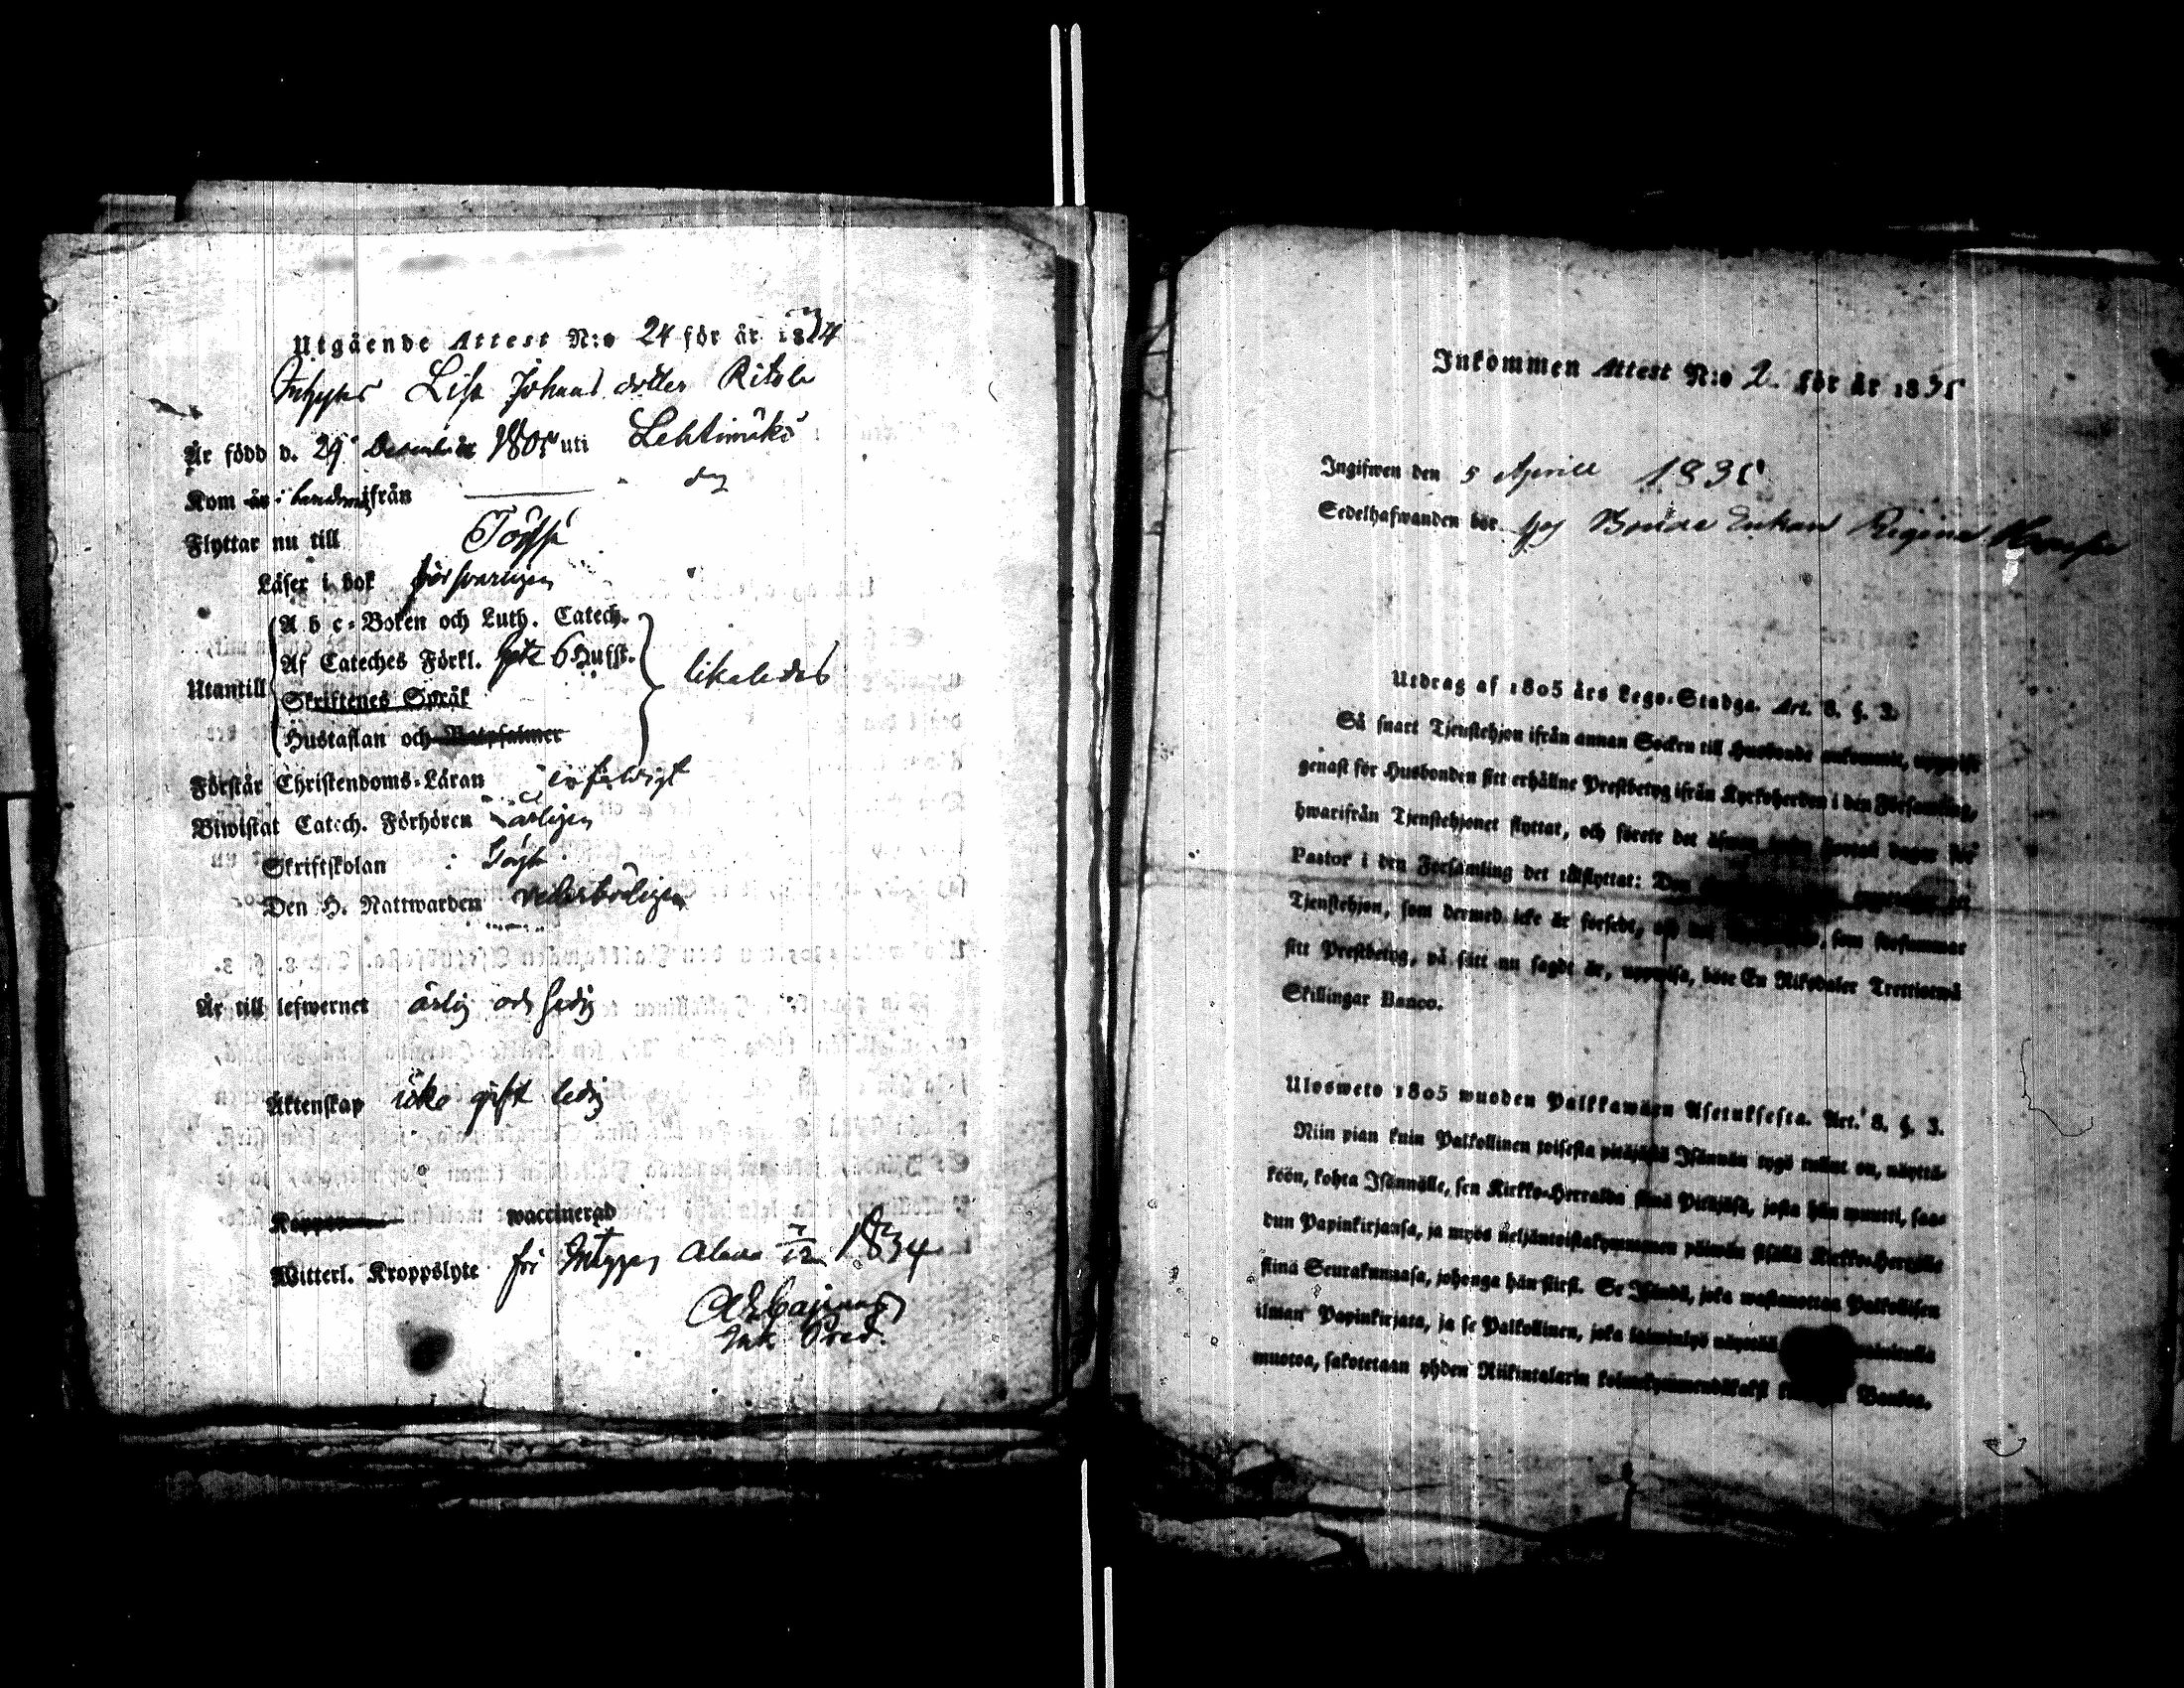 Utgående Attest N:o 24 för år 1834
Lisa Johans dotter Ritola
Är född d. 29 December 1805 uti Lehtimäki
Kom år i barndomen ifrån
Flyttar nu till Töysä
Läser i bok försvarligen
Utantill
A b c-Boken och Luth. Catech.
Af Cateches Förkl. 6 Hufst.
Skriftenes Språk
Hustaflan och Botpsalmer
likaledes
Förstår Christendoms-Läran enfaldigt
Biwistat Catech. Förhören årligen
Skriftskolan : Töysä
Den H. Nattwarden vederbörligen
Är till lefwernet ärlig och sedig
Äktenskap icke gift ledig
waccinerad
Witterl. Kroppslyte fri Intygar Alavo 7/12 1834
Pred.
Inkommen Attest N:o 2. för år 1835
Ingifwen den 5 Aprill 1835
Sedelhafwanden bor hos Bonde Enkan Regina
Utdrag af 1805 års Lego-Stadga. Art. 8. §. 3.
Så snart Tjenstehjon ifrån annan Socken till Husbonde ankommit, uppwise
genast för Husbonden sitt erhållne Prestbetyg ifrån Kyrkoherden i den Församling,
hwarifrån Tjenstehjonet flyttat, och förete det äfwen inom fjorton dagar för
Pastor i den Församling det tillflyttat: Den
Tjenstehjon, som dermed icke är försedt, och det som försummar
sitt Prestbetyg, på sätt nu sagdt är, uppwisa, böte En Riksdaler Trettiotwå
Skillingar Banco.
Ulosweto 1805 wuoden Palkkawäen Asetuksesta. Art. 8. §. 3.
Niin pian kuin Palkollinen toisesta pitäjästä Isännän tygö tullut on, näyttä-
köön, kohta Isännälle, sen Kirkko-Herralda siinä Pitäjäsä, josta hän muutti, saa-
dun Papinkirjansa, ja myös neljäntoistakymmenen päiwän sisällä Kirkko-Herralle
siinä Seurakunnasa, johonga hän siirsi. Se Isändä, joka wastanottaa Palkollisen
ilman Papinkirjata, ja se Palkollinen, joka laiminlyö näyttää
muotoa, sakotetaan yhden Riikintalarin kolmekymmendäkaksi Bankos.